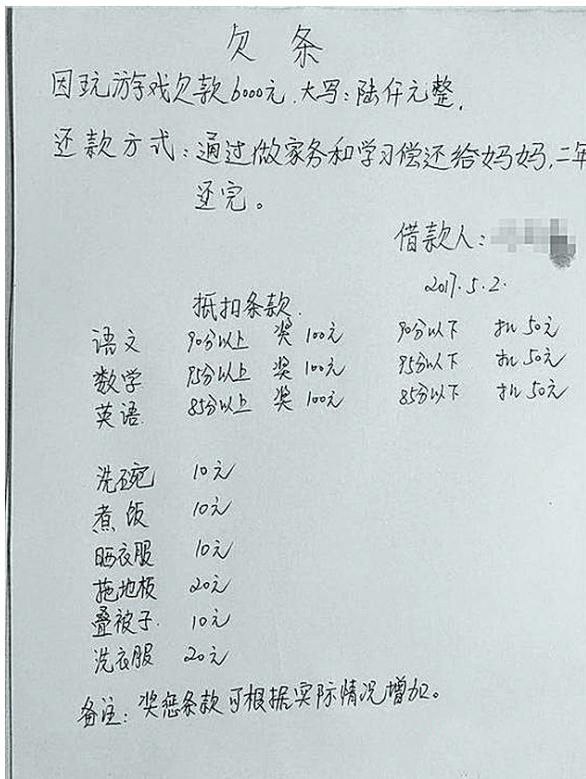 欠条
因玩游戏欠款6000元.大写:陆仟元整,
还款方式:通过做家务和学习偿还给妈妈,二年
还完。
借款人:
2017.5.2.
抵扣条款.
语文 90分以上 奖 100元 90分以下 扣 50元
数学 95分以上 奖 100元 95分以下 扣 50元
英语. 85分以上 奖 100元 85分以下 扣 50元
洗碗 10元
煮饭 10元
晒衣服 10元
拖地板 20元
叠被子. 10元
洗衣服 20元
备注:奖惩条款可根据实际情况增加。